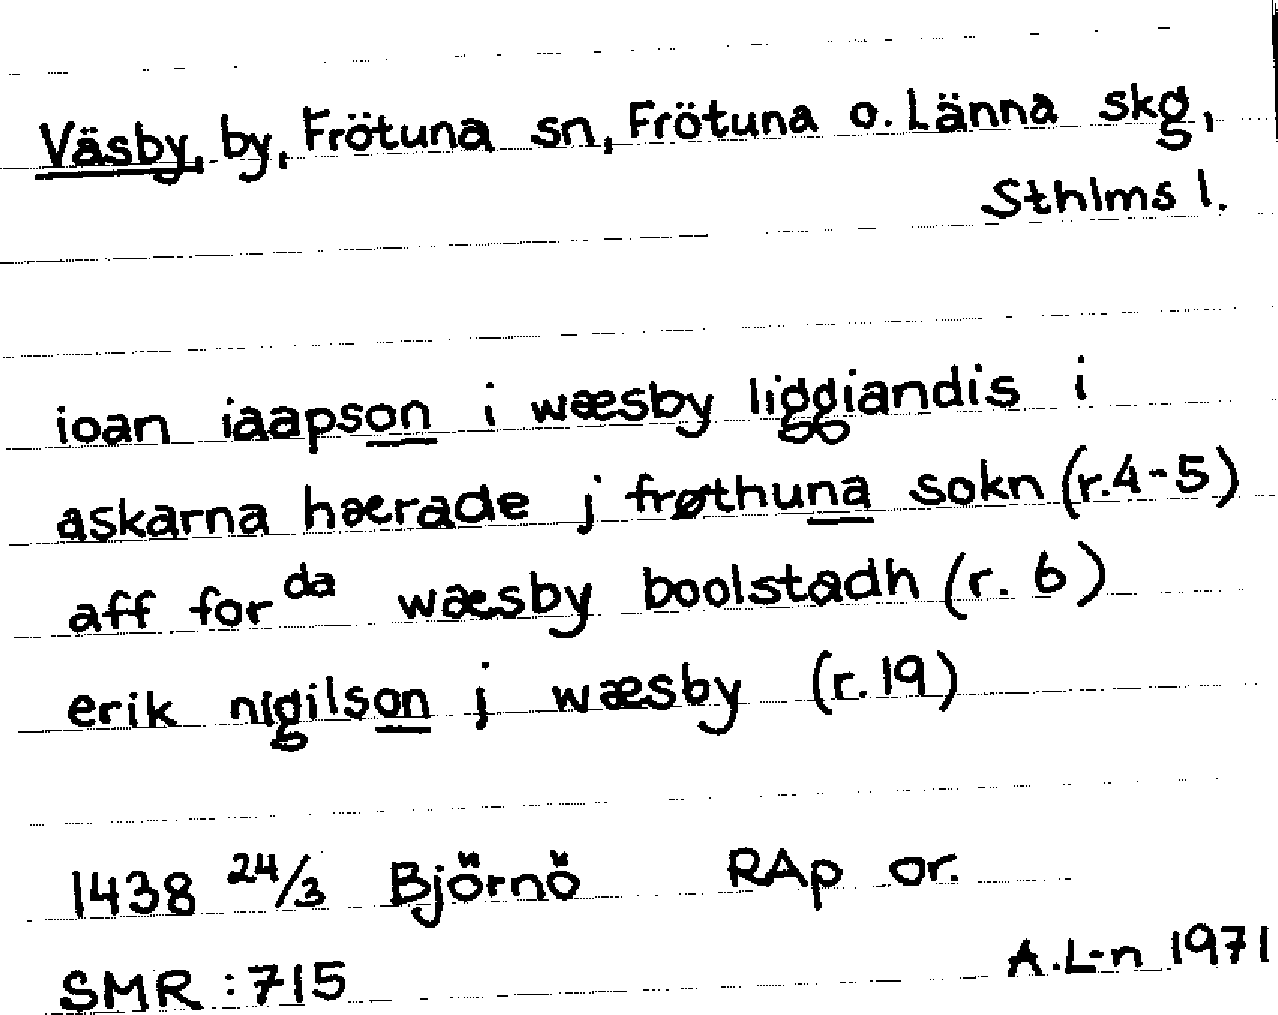 Väsby, by, Frötuna sn, Frötuna o. Länna skg,
Sthlms l.
ioan iaapson i wæsby liggiandis i
askarna hærade j frøthuna sokn (r.4-5)
aff for da wæsby boolstadh (r. 6)
erik nigilson j wæsby (r.19)
1438 24/3 Björnö RAp or.
SMR : 715
A.L-n 1971